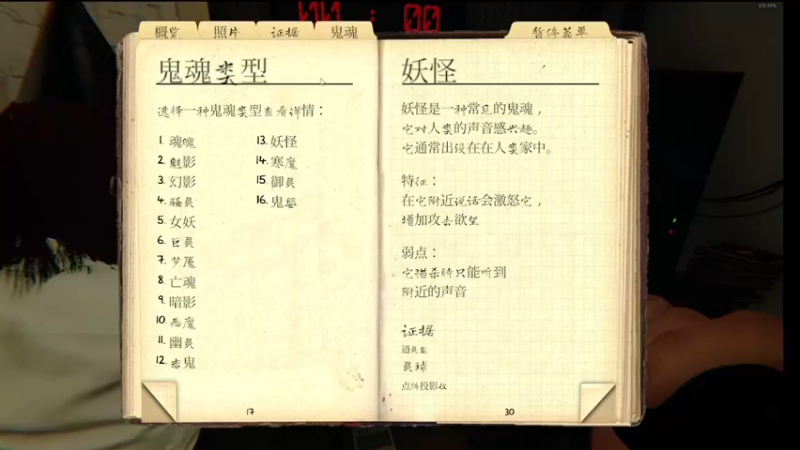 概览 照片 证据 鬼魂 暂停菜单
鬼魂类型
选择一种鬼魂类型查看详情：
1. 魂魄
2. 魅影
3. 幻影
4. 骚灵
5. 女妖
6. 巨灵
7. 梦魇
8. 亡魂
9. 暗影
10. 恶魔
11. 幽灵
12. 赤鬼
13. 妖怪
14. 寒魔
15. 御灵
16. 鬼婴
17
妖怪
妖怪是一种常见的鬼魂，
它对人类的声音感兴趣。
它通常出没在在人类家中。
特征：
在它附近说话会激怒它，
增加攻击欲望
弱点：
它猎杀时只能听到
附近的声音
证据
通灵盒
灵球
点阵投影仪
30